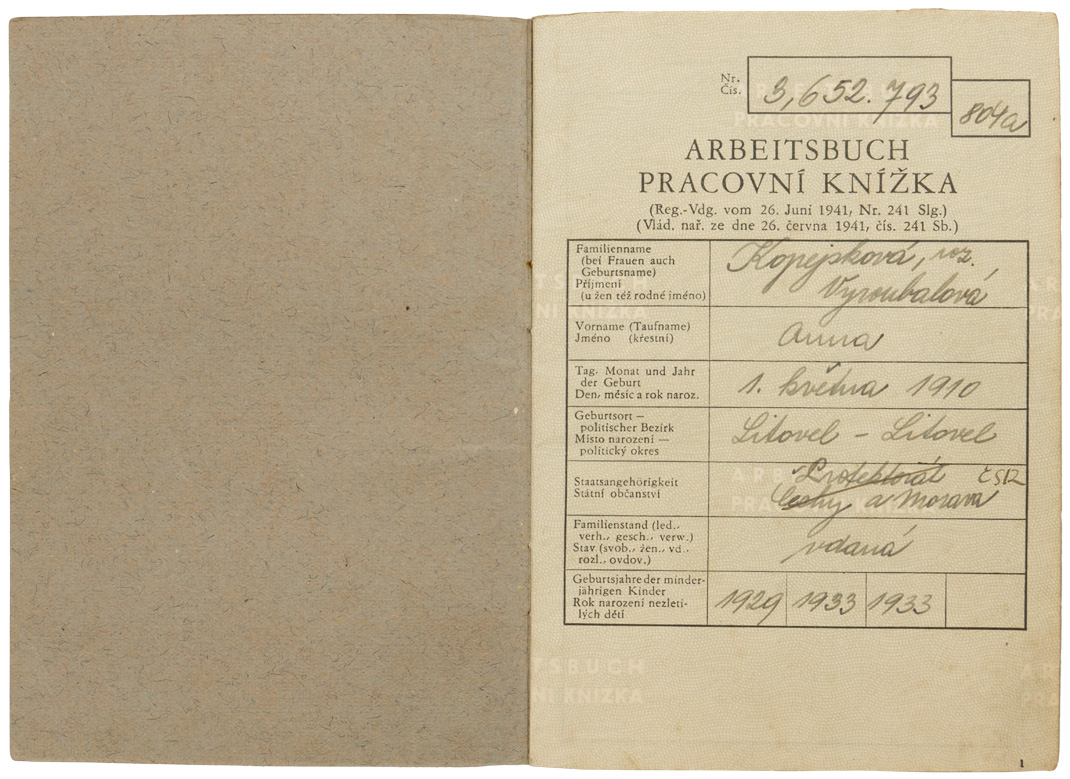 Nr.
Čís.
3,652.793
804a
ARBEITSBUCH
PRACOVNÍ KNÍŽKA
(Reg.-Vdg. vom 26. Juni 1941, Nr. 241 Slg.)
(Vlád. nař. ze dne 26. června 1941, čís. 241 Sb.)
Familienname
(bei Frauen auch
Geburtsname)
Příjmení
(u žen též rodné jméno)
Kopejsková, roz.
Vyroubalová
Vorname (Taufname)
Jméno (křestní)
Anna
Tag, Monat und Jahr
der Geburt
Den, měsíc a rok naroz.
1. května 1910
Geburtsort —
politischer Bezirk
Místo narození —
politický okres
Litovel - Litovel
Staatsangehörigkeit
Státní občanství
Protektorát ČSR
Čechy a Morava
Familienstand (led.,
verh., gesch., verw.)
Stav (svob., žen., vd.,
rozl., ovdov.)
vdaná
Geburtsjahre der minder-
jährigen Kinder
Rok narození nezleti-
lých dětí
1929 1933 1933
1